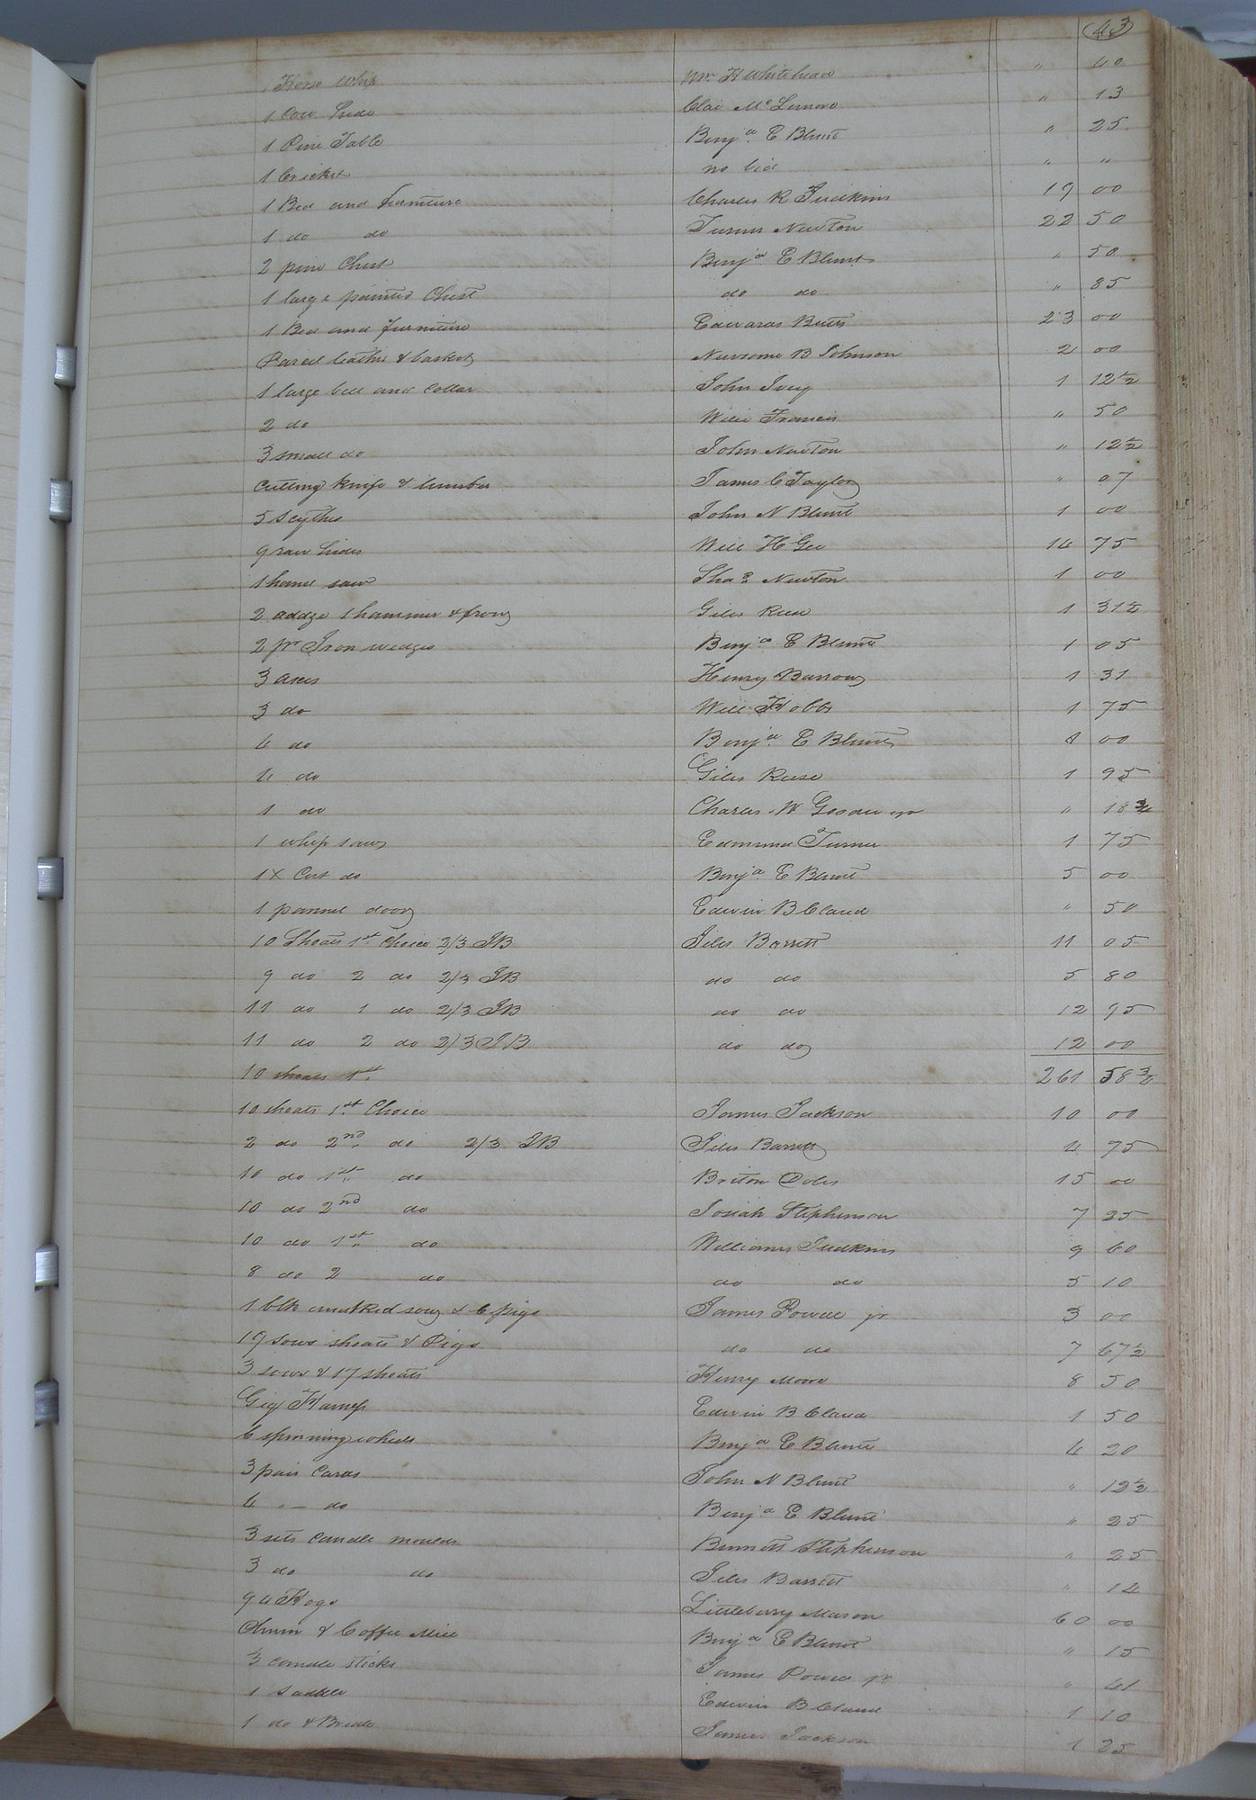 43
1 Horse Whip Wm H Whitehead " 40
1 Cow hide Clai McLemore " 13
1 Pine Table Benja E Blunt " 25
1 Cricket no bid " "
1 Bed and furniture Charles R Judkins 19 00
1 do do Turner Newton 22 50
2 pine Chest Benja E Blunt " 50
1 large painted Chest do do " 85
1 Bed and furniture Edwards Butts 23 00
Parcel leather & basket Newsome B Johnson 2 00
1 large bell and Collar John Ivey 1 12½
2 do Wilie Francis " 50
3 small do John Newton " 12½
Cutting knife & lumber James C Taylor " 07
5 Scythes John N Blunt 1 00
9 raw hides Will H Gee 14 75
1 hand saw Thas Newton 1 00
2 addze 1 hammer & frow Giles Reese 1 31½
2 pr Iron wedges Benja E Blunt 1 05
3 axes Henry Barrow 1 31
3 do Will Hobbs 1 75
4 do Benja E Blunt 1 00
4 do Giles Reese 1 95
1 do Charles W " 18¾
1 whip saw Edmund Turner 1 75
1 X Cut do Benja E Blunt 5 00
1 pannel door Edwin B Claud " 50
10 Shoats 1st Choice 2/3 JB Jiles Barrett 11 05
9 do 2 do 2/3 JB do do 5 80
11 do 1 do 2/3 JB do do 12 95
11 do 2 do 2/3 JB do do 12 00
10 shoats 1st 261 58¾
10 shoats 1st Choice James Jackson 10 00
2 do 2nd do 2/3 JB Jiles Barrett 4 75
10 do 1st do Briton Doles 15 00
10 do 2nd do Josiah Stephenson 7 25
10 do 1st do Williams Judkins 9 60
8 do 2 do do do 5 10
1 blk sow & 6 pigs James Powell jr 3 00
19 sows shoats & Pigs do do 7 67½
3 sows & 17 shoats Henry Moore 8 50
Gig Harness Edwin B Claud 1 50
6 spinning wheels Benja E Blunt 4 20
3 pair Cards John N Blunt " 12½
4 " — do Benja E Blunt " 25
3 sets Candle moulds Bennett Stephenson " 25
3 do do Jiles Barrett " 12
Hogs Littleberry Mason 60 00
Churn & Coffee Mill Benja E Blunt " 15
3 candle sticks James Powell jr " 41
1 Saddle Edwin B Claud 1 10
1 do & Bridle James Jackson 1 25